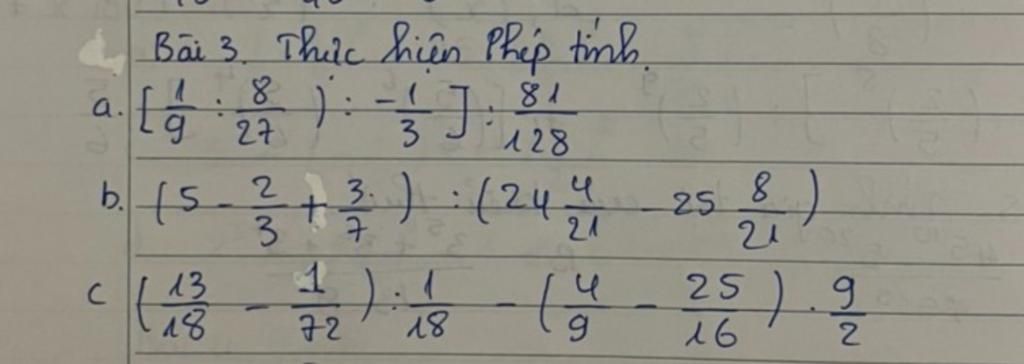 Bài 3. Thực hiện Phép tính.
a. [1/9 : 8/27) : -1/3] : 81/128
b. (5 - 2/3 + 3/7) : (24 4/21 - 25 8/21)
c (13/18 - 1/72) : 1/18 - (4/9 - 25/16) . 9/2